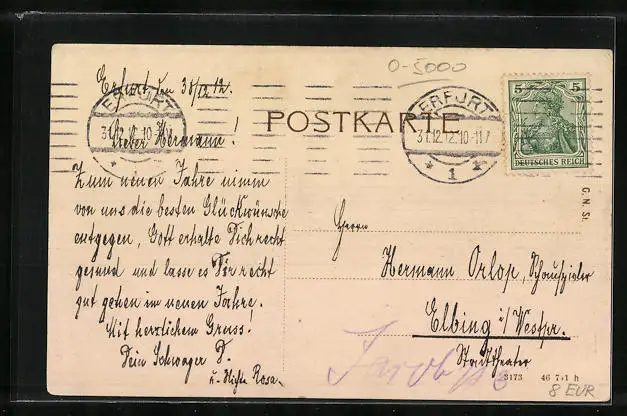 0-5000
Erfurt den 30/12.12.
ERFURT
31.12.12.10-11V
Lieber Hermann!
POSTKARTE
ERFURT
31.12.12.10-11V
* 1 *
5 5
DEUTSCHES REICH
G. N. St.
Zum neuen Jahre nimm
von uns die besten Glückwünsche
entgegen, Gott erhalte Dich recht
gesund und lasse es Dir recht
gut gehen im neuen Jahre,
Mit herzlichem Gruss.
Dein Schwager D.
u. Rosa.
Herrn
Hermann Orlop, Schauspieler
Elbing i/Westpr.
Stadttheater
3173 46 7+1 h
8 EUR